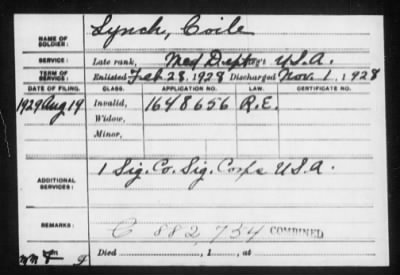 NAME OF SOLDIER: Lynch, Coile
SERVICE: Late rank, Med Dept U.S.A.
TERM OF SERVICE: Enlisted Feb 28, 1928 Discharged Nov. 1, 1928
DATE OF FILING. CLASS. APPLICATION NO. LAW. CERTIFICATE NO.
1929 Aug 14 Invalid, 1648656 R.E.
Widow,
Minor,
ADDITIONAL SERVICES: 1 Sig. Co. Sig. Corps U.S.A.
REMARKS: C 882,754 COMBINED
Died , 1 , at